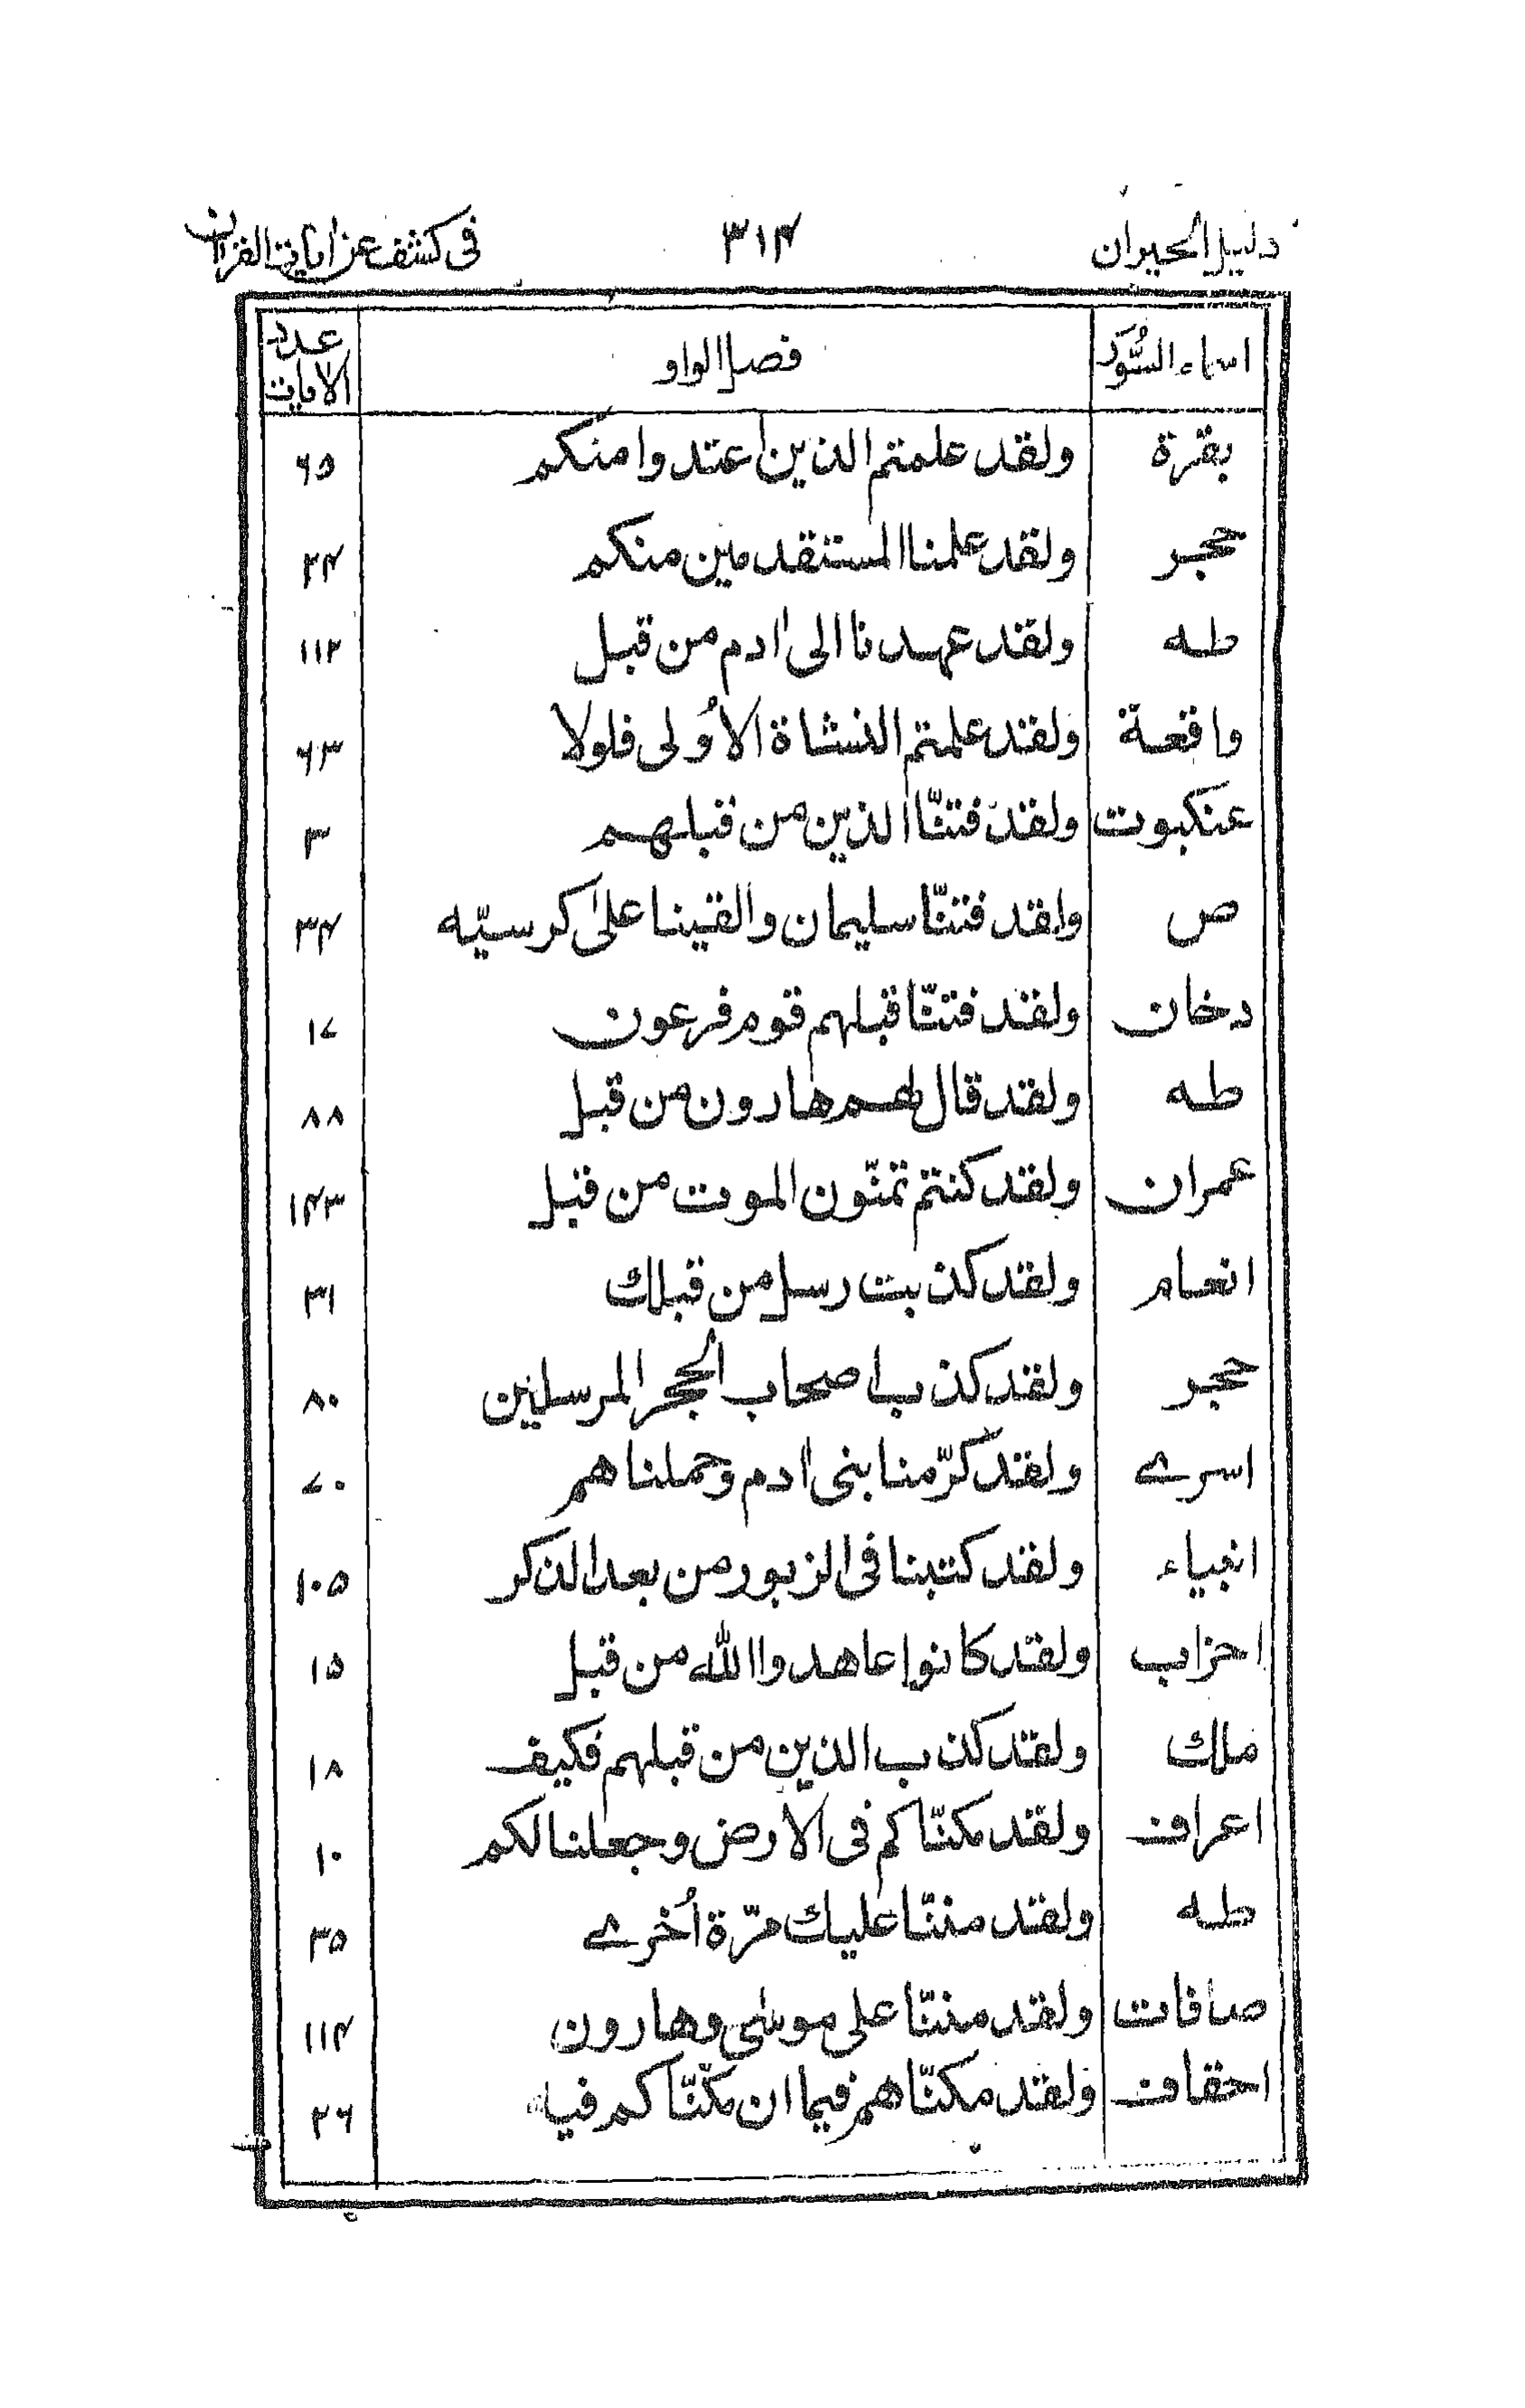 دليل الحيران ۳۱۴ فى كشف عن اٰيات القراٰن
اسماء السُّوَر فصل الواو عدد الاٰيات
بقرة ولقد علمتم الذين اعتدوا منكم ۶۵
حجر ولقد علمنا المستقدمين منكم ۲۴
طه ولقد عهدنا الى اٰدم من قبل ۱۱۲
واقعة ولقد علمتم النشاة الاُولى فلولا ۶۳
عنكبوت ولقد فتنّا الذين من قبلهم ۳
ص ولقد فتنّا سليمان والقينا على كرسيّه ۳۴
دخان ولقد فتنّا قبلهم قوم فرعون ۱۷
طه ولقد قال لهم هارون من قبل ۸۸
عمران ولقد كنتم تمنّون الموت من قبل ۱۴۳
انعام ولقد كذبت رسل من قبلك ۳۱
حجر ولقد كذب اصحاب الحجر المرسلين ۸۰
اسرے ولقد كرّمنا بنى اٰدم وحملناهم ۷۰
انبياء ولقد كتبنا فى الزبور من بعد الذكر ۱۰۵
احزاب ولقد كانوا عاهدوا الله من قبل ۱۵
ملك ولقد كذب الذين من قبلهم فكيف ۱۸
اعراف ولقد مكنّاكم فى الارض وجعلنا لكم ۱۰
طه ولقد مننّا عليك مرّة اُخرے ۳۵
صافات ولقد مننّا على موسٰى وهارون ۱۱۴
احقاف ولقد مكنّاهم فيما ان مكّنّاكم فيه ۲۶